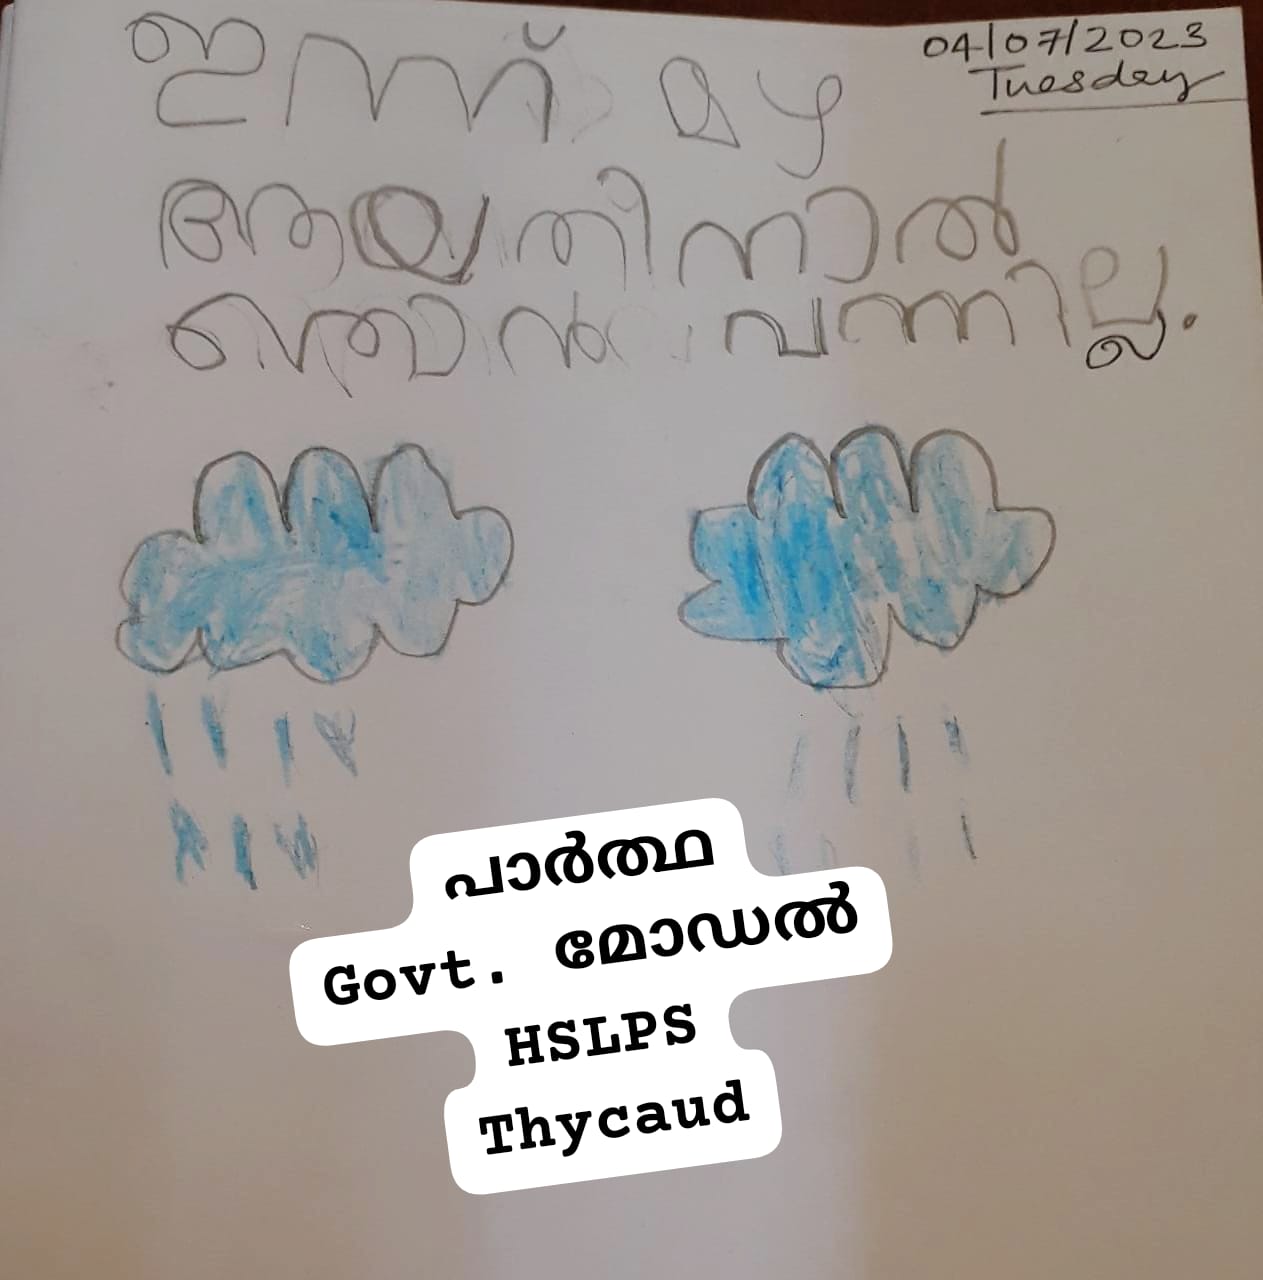 04/07/2023
Tuesday
ഇന്ന് മഴ
ആയതിനാൽ
ഞാൻ വന്നില്ല.
പാർത്ഥ
Govt. മോഡൽ
HSLPS
Thycaud